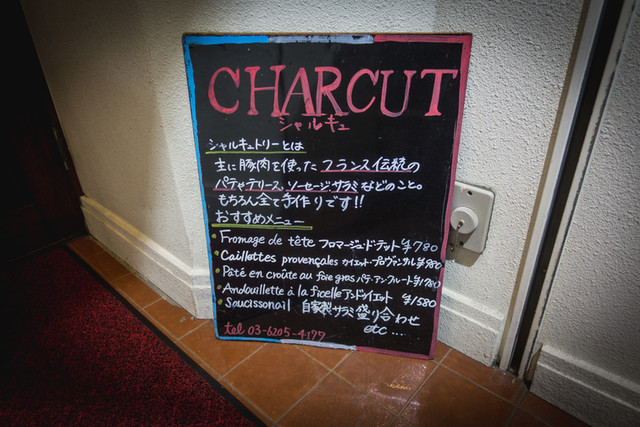 CHARCUT
シャルキュ
シャルキュトリーとは
主に豚肉を使ったフランス伝統の
パテやテリーヌ、ソーセージ、サラミなどのこと。
もちろん全て手作りです!!
おすすめメニュー
• Fromage de tête フロマージュ・ド・テット ¥780
• Caillettes provençales カイエット・プロヴァンサル ¥980
• Pâté en croûte au foie gras パテ・アンクルート ¥1780
• Andouillette à la ficelle アンドゥイエット ¥1580
• Saucissonail 自家製サラミ盛り合わせ
etc ....
tel 03-6205-4177